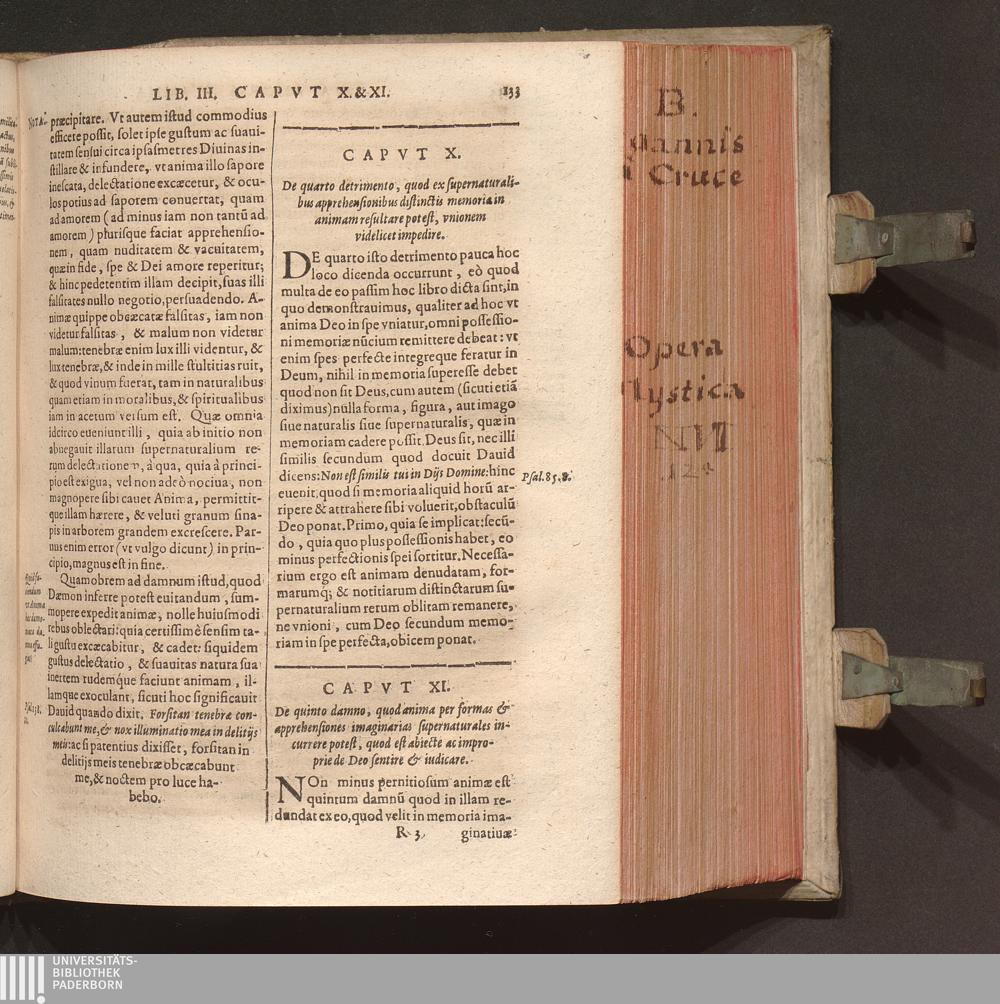 LIB. III. CAPVT X. & XI. 133
NOTA.
præcipitare. Vt autem istud commodius
efficere possit, solet ipse gustum ac suaui-
tatem sensui circa ipsasmet res Diuinas in-
stillare & infundere, vt anima illo sapore
inescata, delectatione excæcetur, & ocu-
los potius ad saporem conuertat, quam
ad amorem (ad minus iam non tantũ ad
amorem) plurisque faciat apprehensio-
nem, quam nuditatem & vacuitatem,
quæ in fide, spe & Dei amore reperitur;
& hinc pedetentim illam decipit, suas illi
falsitates nullo negotio, persuadendo. A-
nimæ quippe obcæcatæ falsitas, iam non
videtur falsitas, & malum non videtur
malum: tenebræ enim lux illi videntur, &
lux tenebræ, & inde in mille stultitias ruit,
& quod vinum fuerat, tam in naturalibus
quam etiam in moralibus, & spiritualibus
iam in acetum versum est. Quæ omnia
idcirco eueniunt illi, quia ab initio non
abnegauit illarum supernaturalium re-
rum delectationem, à qua, quia à princi-
pio est exigua, vel non adeò nociua, non
magnopere sibi cauet Anima, permittit-
que illam hærere, & veluti granum sina-
pis in arborem grandem excrescere. Par-
nus enim error (vt vulgo dicunt) in prin-
cipio, magnus est in fine.
Quamobrem ad damnum istud, quod
Dæmon inferre potest euitandum, sum-
mopere expedit animæ, nolle huiusmodi
rebus oblectari: quia certissimè sensim ta-
li gustu excæcabitur, & cadet: siquidem
gustus delectatio, & suauitas natura sua
inertem rudemq́ue faciunt animam, il-
lamque exoculant, sicuti hoc significauit
Dauid quando dixit. Forsitan tenebræ con-
culcabunt me, & nox illuminatio mea in delitijs
meis: ac si patentius dixisset, forsitan in
delitijs meis tenebræ obcæcabunt
me, & noctem pro luce ha-
bebo.
CAPVT X.
De quarto detrimento, quod ex supernaturali-
bus apprehensionibus distinctis memoria in
animam resultare potest, vnionem
videlicet impedire.
DE quarto isto detrimento pauca hoc
loco dicenda occurrunt, eò quod
multa de eo passim hoc libro dicta sint, in
quo demonstrauimus, qualiter ad hoc vt
anima Deo in spe vniatur, omni possessio-
ni memoriæ nũcium remittere debeat: vt
enim spes perfecte integreque feratur in
Deum, nihil in memoria superesse debet
quod non sit Deus, cum autem (sicuti etiã
diximus) nulla forma, figura, aut imago
siue naturalis siue supernaturalis, quæ in
memoriam cadere possit, Deus sit, nec illi
similis secundum quod docuit Dauid
dicens: Non est similis tui in Dijs Domine: hinc
euenit, quod si memoria aliquid horũ ar-
ripere & attrahere sibi voluerit, obstaculũ
Deo ponat. Primo, quia se implicat: secũ-
do, quia quo plus possessionis habet, eo
minus perfectionis spei sortitur. Necessa-
rium ergo est animam denudatam, for-
marumq; & notitiarum distinctarum su-
pernaturalium rerum oblitam remanere,
ne vnioni, cum Deo secundum memo-
riam in spe perfecta, obicem ponat.
Psal. 85. 8.
CAPVT XI.
De quinto damno, quod anima per formas &
apprehensiones imaginarias supernaturales in-
currere potest, quod est abiecte ac impro-
prie de Deo sentire & iudicare.
NOn minus pernitiosum animæ est
quintum damnũ quod in illam re-
dundat ex eo, quod velit in memoria ima-
R 3 ginatiuæ
B.
oannis
Cruce
Opera
Mystica
UNIVERSITÄTS-
BIBLIOTHEK
PADERBORN